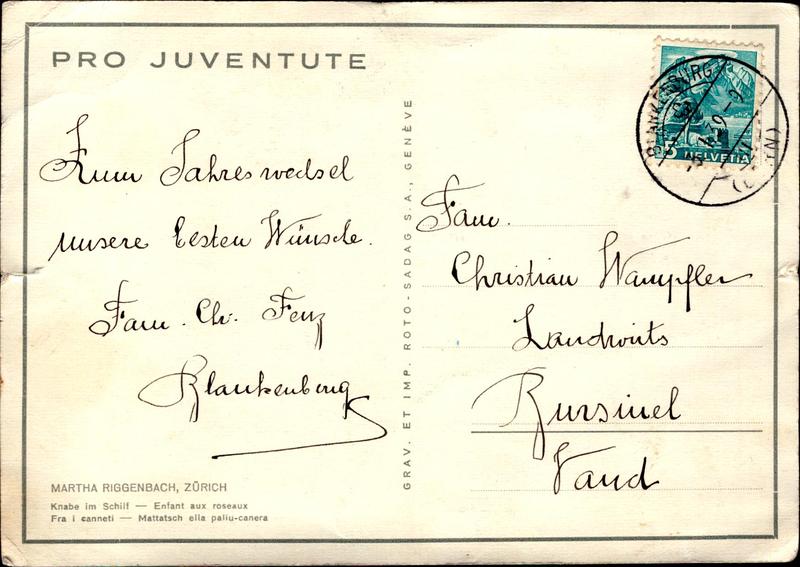 PRO JUVENTUTE
Zum Jahreswechsel
unsere besten Wünsche.
Fam. Chr. Fenz
Blankenburg
MARTHA RIGGENBACH, ZÜRICH
Knabe im Schilf — Enfant aux roseaux
Fra i canneti — Mattatsch ella paliu-canera
GRAV. ET IMP. ROTO-SADAG S.A., GENÈVE
5 HELVETIA
BLANKENBURG
(BERN)
Fam.
Christian Wampfler
Landwirts
Bursinel
Vaud